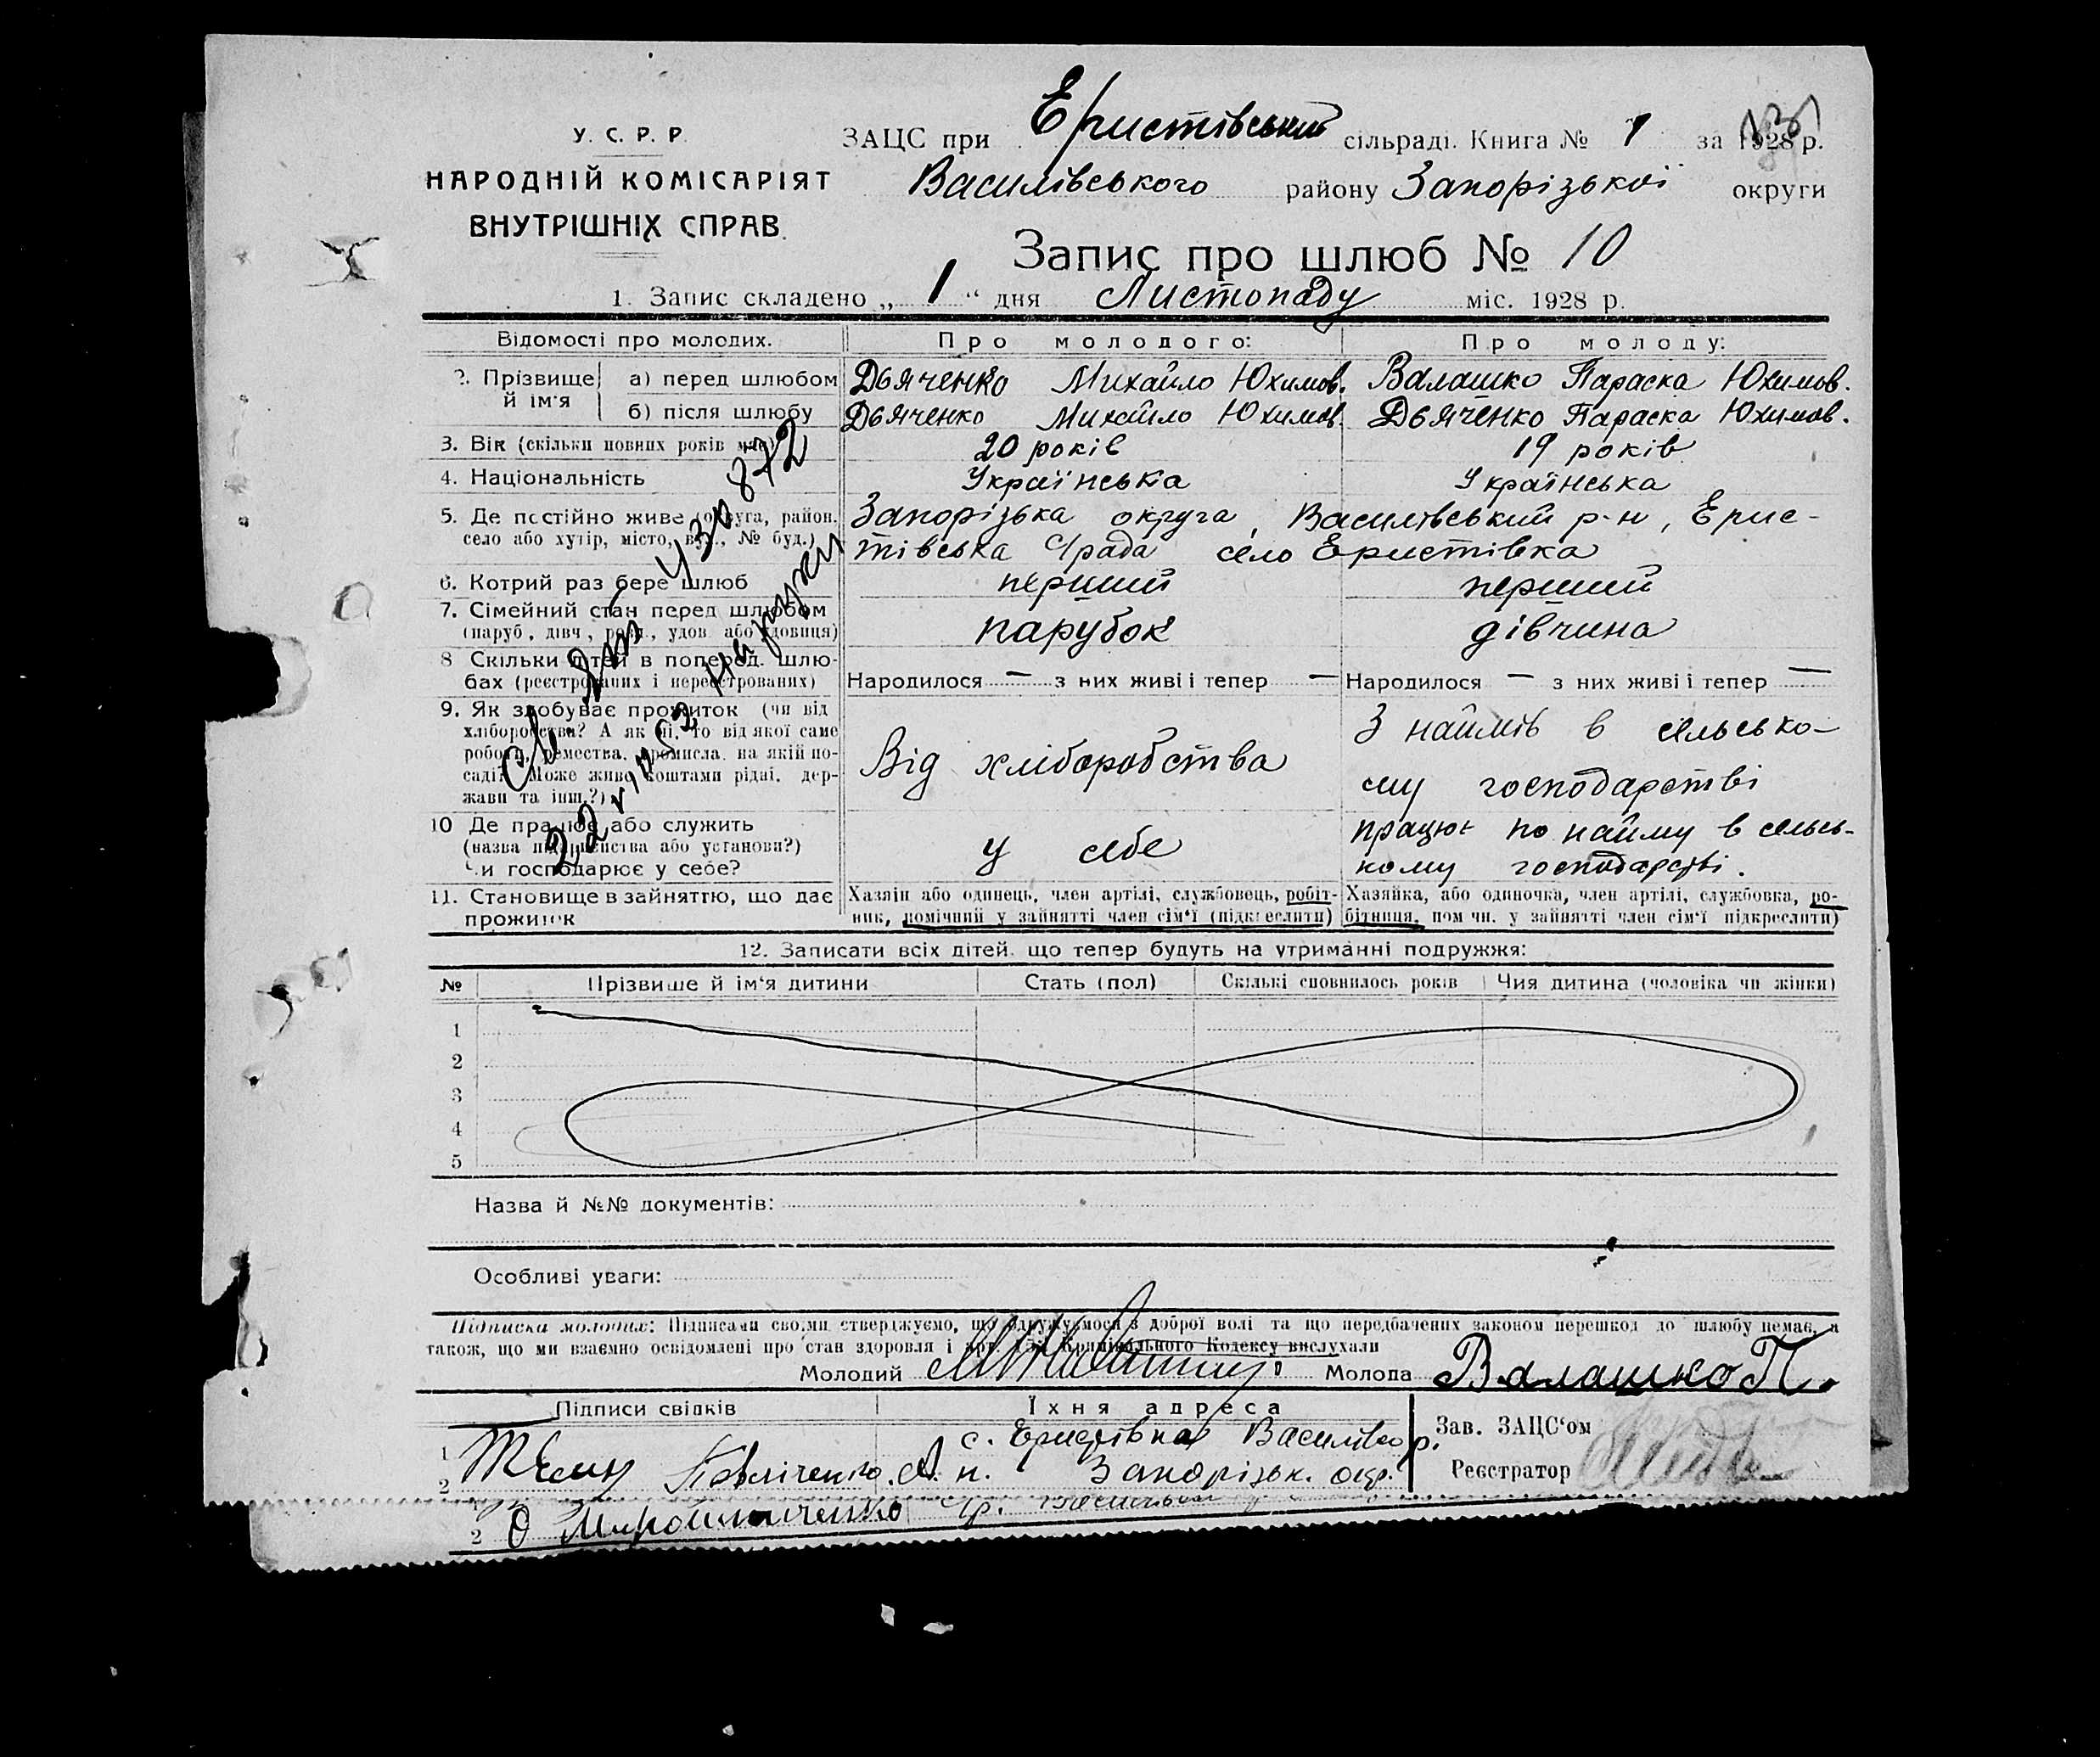 У. С. Р. Р.
НАРОДНІЙ КОМІСАРІЯТ
ВНУТРІШНІХ СПРАВ.
ЗАЦС при Еристівській сільраді. Книга № 1 за 1928 р.
Василівського району Запорізької округи
Запис про шлюб № 10
1. Запис складено „ 1 “ дня Листопаду міс. 1928 р.
Відомості про молодих. Про молодого: Про молоду:
2. Прізвище й ім'я
а) перед шлюбом Дьяченко Михайло Юхимов. Валашко Параска Юхимов.
б) після шлюбу Дьяченко Михайло Юхимов. Дьяченко Параска Юхимов.
3. Вік (скільки повних років має) 20 років 19 років
4. Національність Українська Українська
5. Де постійно живе (округа, район, Запорізька округа, Василівський р-н, Ерис-
село або хутір, місто, вул., № буд.) тівська С/рада село Еристівка
6. Котрий раз бере шлюб перший перший
7. Сімейний стан перед шлюбом
(паруб, дівч, розв., удов. або вдовиця) парубок дівчина
8 Скільки дітей в поперед. шлю-
бах (реєстрованих і нереєстрованих) Народилося — з них живі і тепер — Народилося — з них живі і тепер —
9. Як здобуває прожиток (чи від
хліборобства? А як ні, то від якої саме
роботи, ремества, промисла, на якій по-
саді? Може живе коштами рідні, дер-
жави та інш.?)
Від хліборобства
З наймів в сільсько-
му господарстві
10 Де працює або служить
(назва підприємства або установи?)
Чи господарює у себе?
у себе
працює по найму в сільсь-
кому господарстві.
11. Становище в зайняттю, що дає
прожиток
Хазяїн або одинець, член артілі, службовець, робіт-
ник, помічний у зайнятті член сім'ї (підкреслити)
Хазяйка, або одиночка, член артілі, службовка, ро-
бітниця, помічн. у зайнятті член сім'ї підкреслити)
22 1952
12. Записати всіх дітей, що тепер будуть на утриманні подружжя:
№ Прізвище й ім'я дитини Стать (пол) Скількі сповнилось років Чия дитина (чоловіка чи жінки)
1
2
3
4
5
Назва й №№ документів:
Особливі уваги:
Підписка молодих: Підписами своїми стверджуємо, що одружуємося з доброї волі та що передбачених законом перешкод до шлюбу немає, а
також, що ми взаємно освідомлені про стан здоровля і арт. Кримінального Кодексу вислухали
Молодий Молода Валашко П.
Підписи свідків Їхня адреса
1 с. Еристівка Василівс р.
2 Запорізьк. окр.
Зав. ЗАЦС'ом
Реєстратор
2 О Мирошниченко